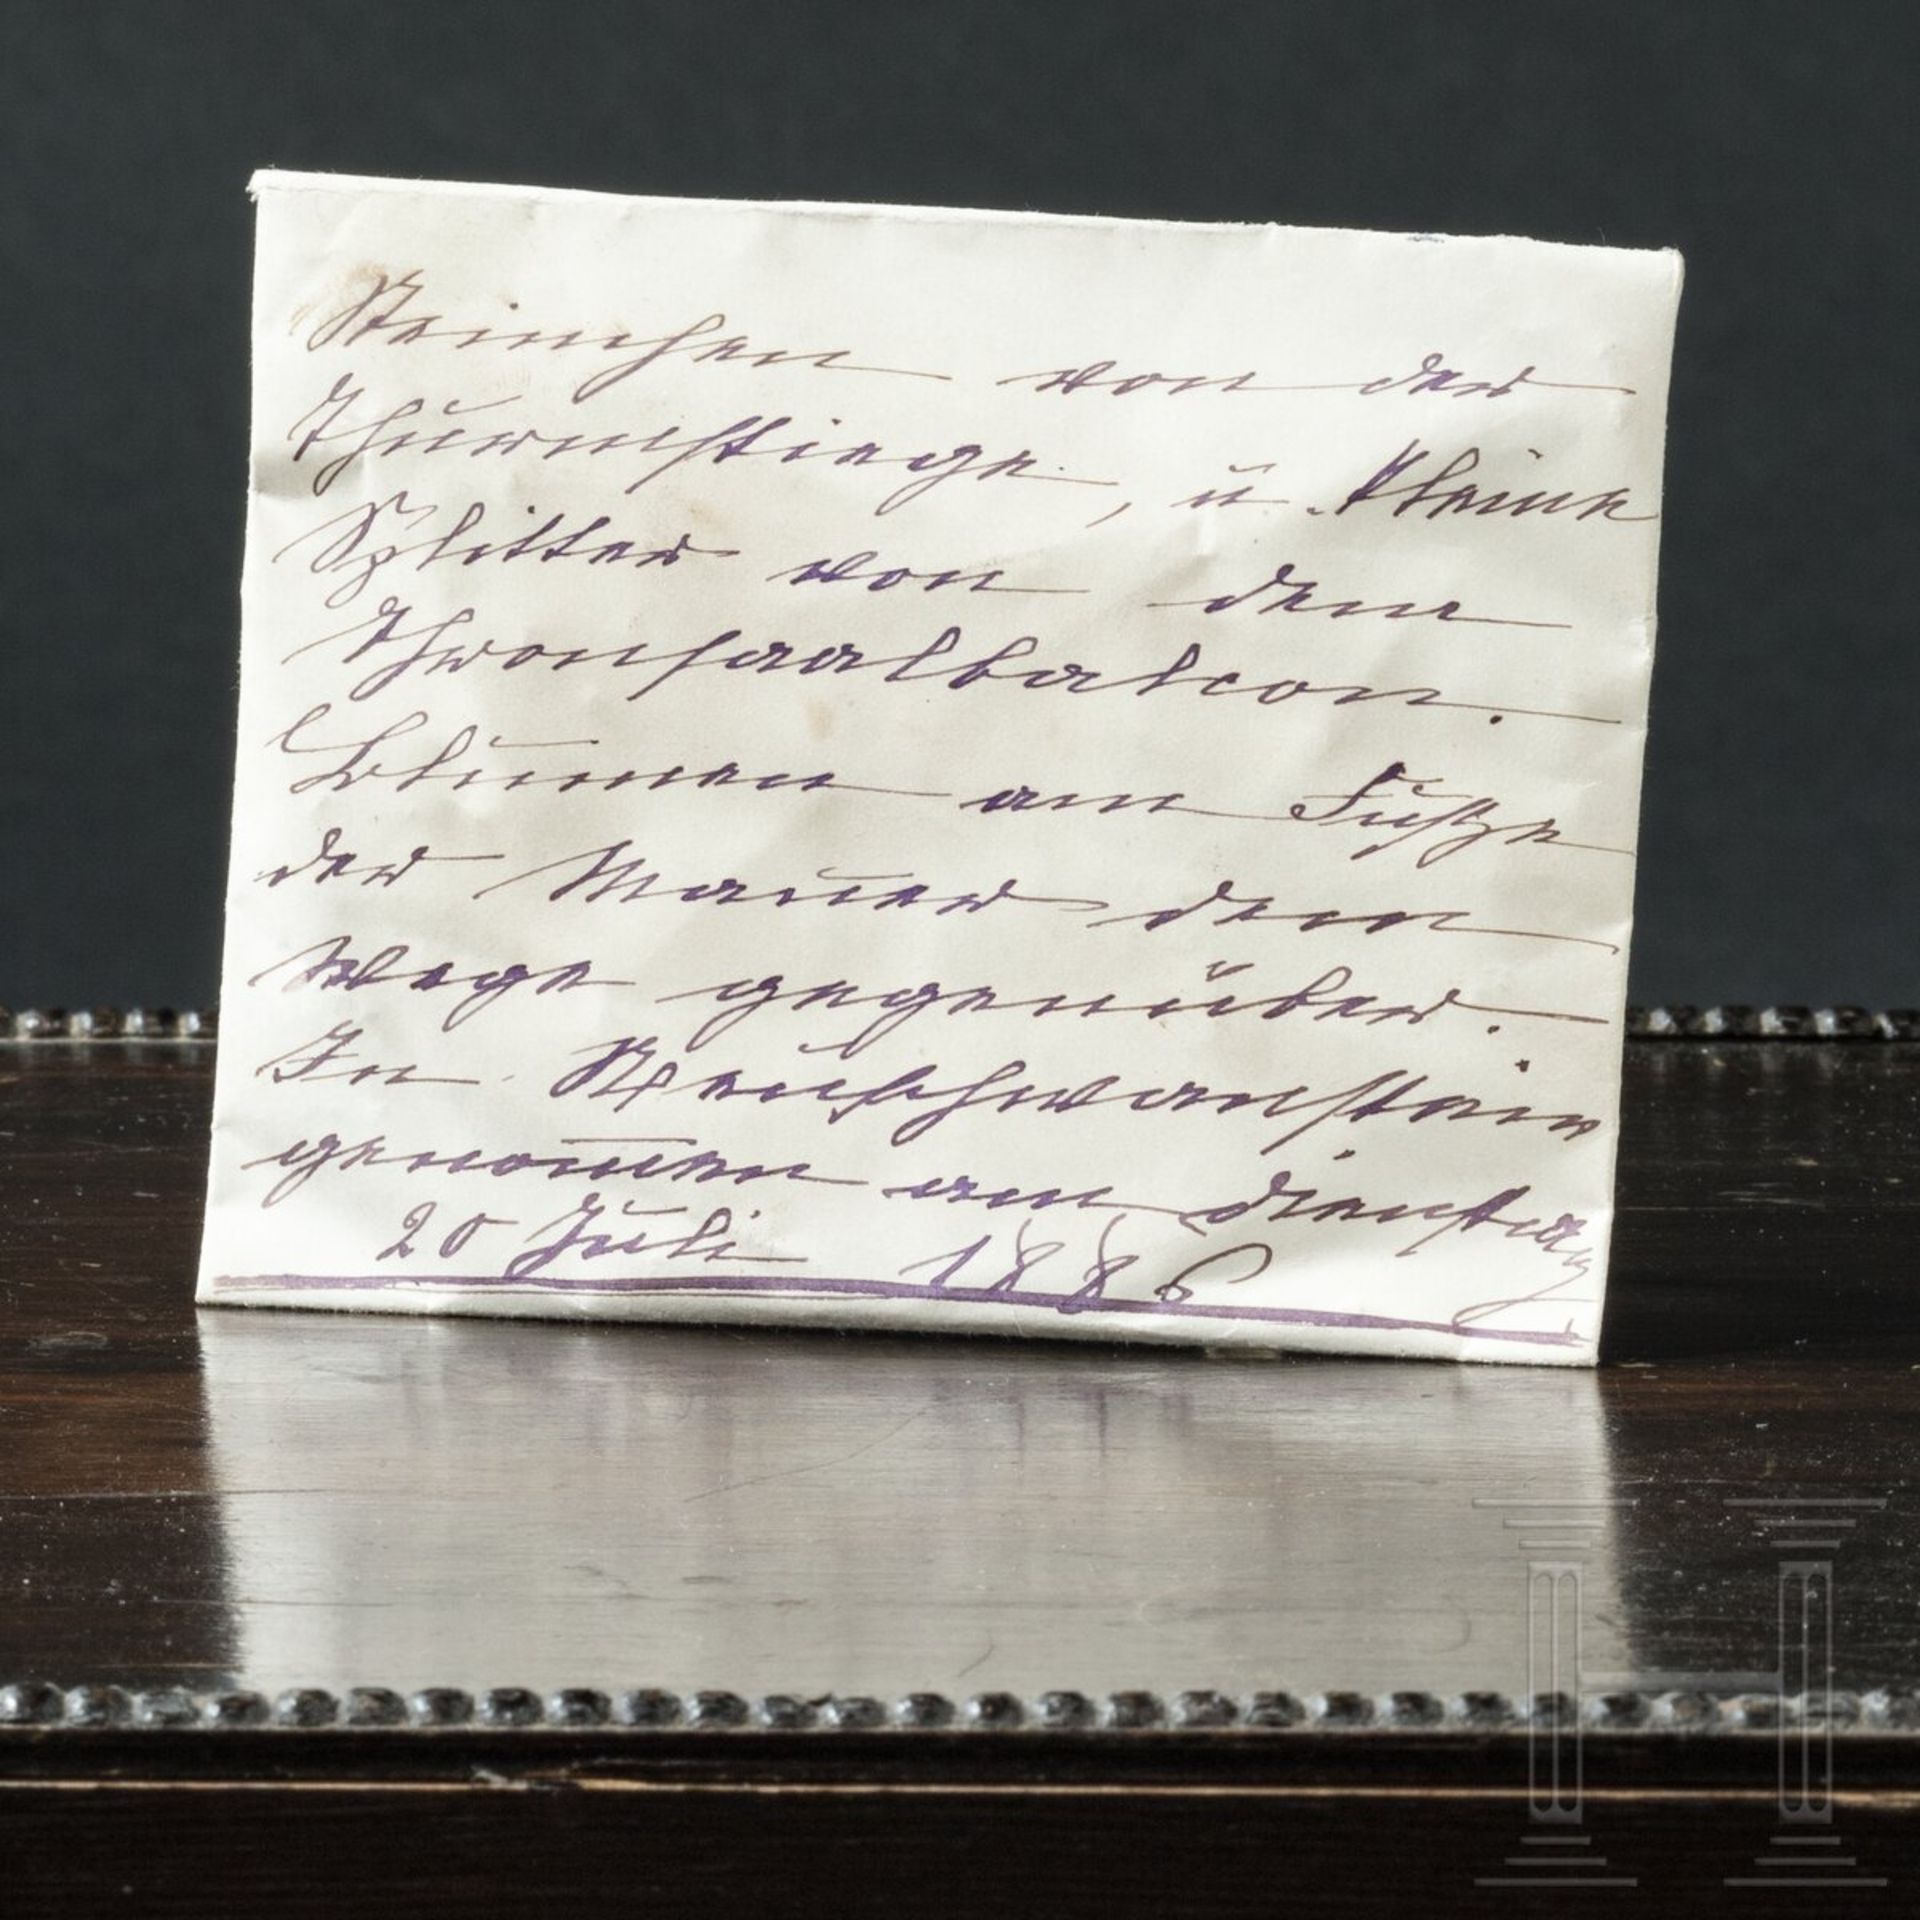 Steinchen von der
Thurmstiege, u. kleine
Splitter von dem
Thronsaalbalcon.
Blumen am Fuße
der Mauer dem
Wege gegenüber.
In Neuschwanstein
genom̅en am Dienstag
20 Juli 1886